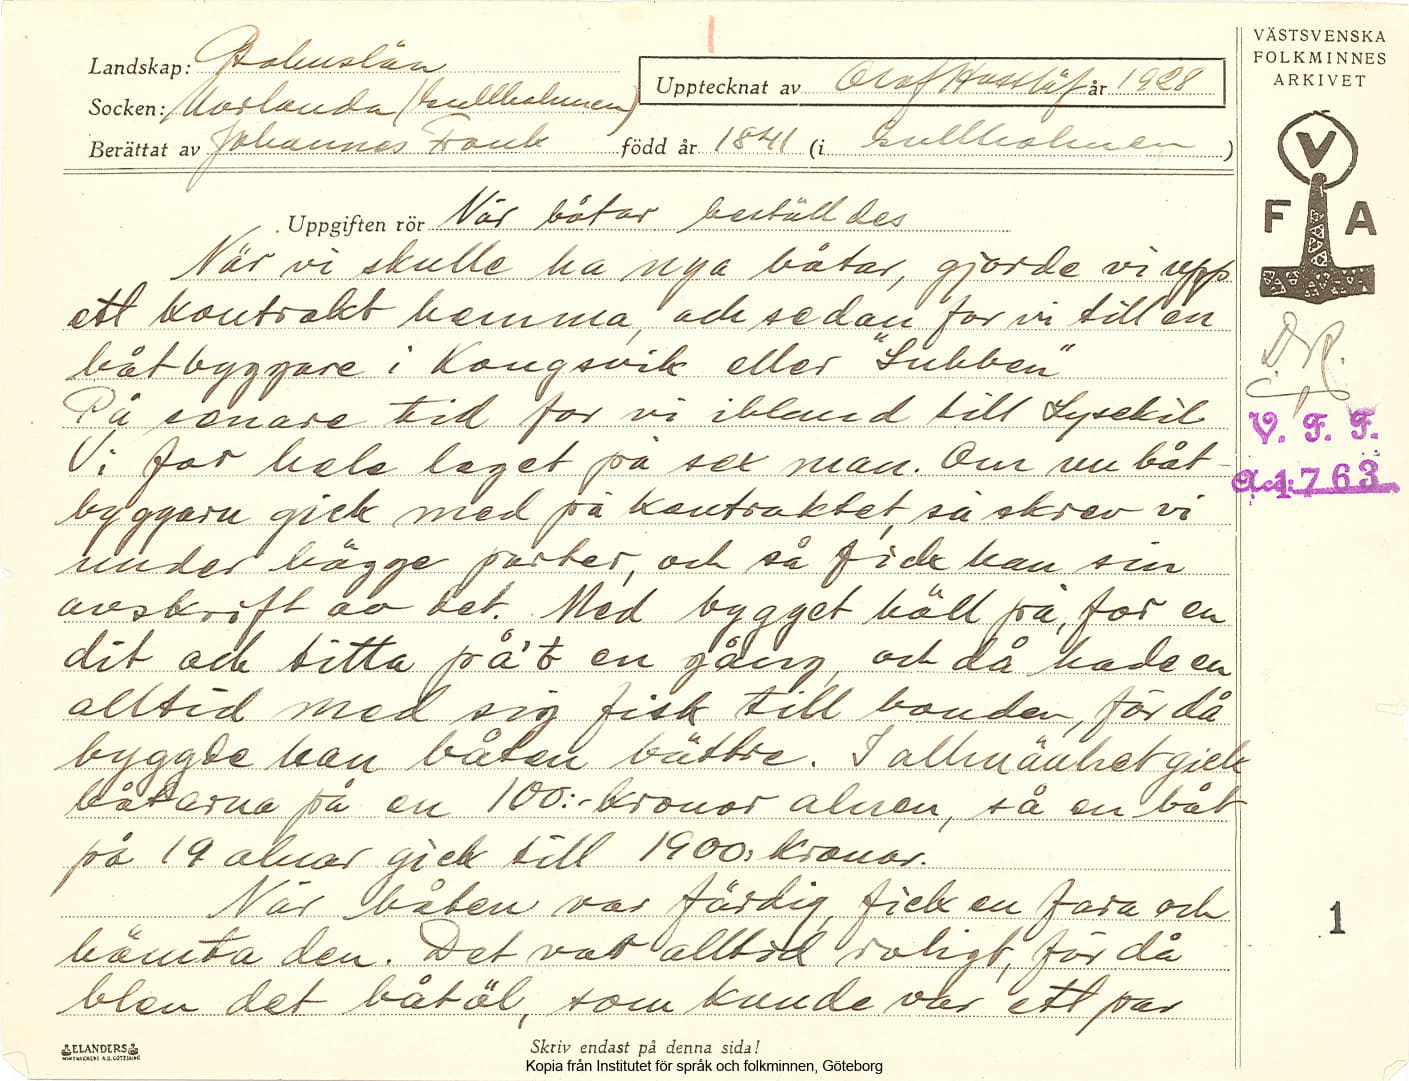 VÄSTSVENSKA
FOLKMINNES
ARKIVET
V
F A
Landskap: Bohuslän
Upptecknat av Olof Hasslöf år 1928
Socken: Morlanda (Gullholmen)
Berättat av Johannes Frank född år 1841 (i Gullholmen)
Uppgiften rör När båtar beställdes
När vi skulle ha nya båtar, gjorde vi upp
ett kontrakt hemma, och sedan for vi till en
båtbyggare i Kongsvik eller "Lubben"
På senare tid for vi ibland till Lysekil
Vi for hela laget på sex man. Om nu båt-
byggarn gick med på kontraktet, så skrev vi
under bägge parter, och så fick han sin
avskrift av det. Med bygget höll på, for en
dit och titta på't en gång, och då hade en
alltid med sig fisk till bonden, för då
byggde han båten bättre. I allmänhet gick
båtarna på en 100:- kronor alnen, så en båt
på 19 alnar gick till 1900: kronor.
När båten var färdig, fick en fara och
hämta den. Det var alltid roligt, för då
blev det båtöl, som kunde var ett par
V. F. F.
Acc: 1763
1
ELANDERS
Skriv endast på denna sida!
Kopia från Institutet för språk och folkminnen, Göteborg